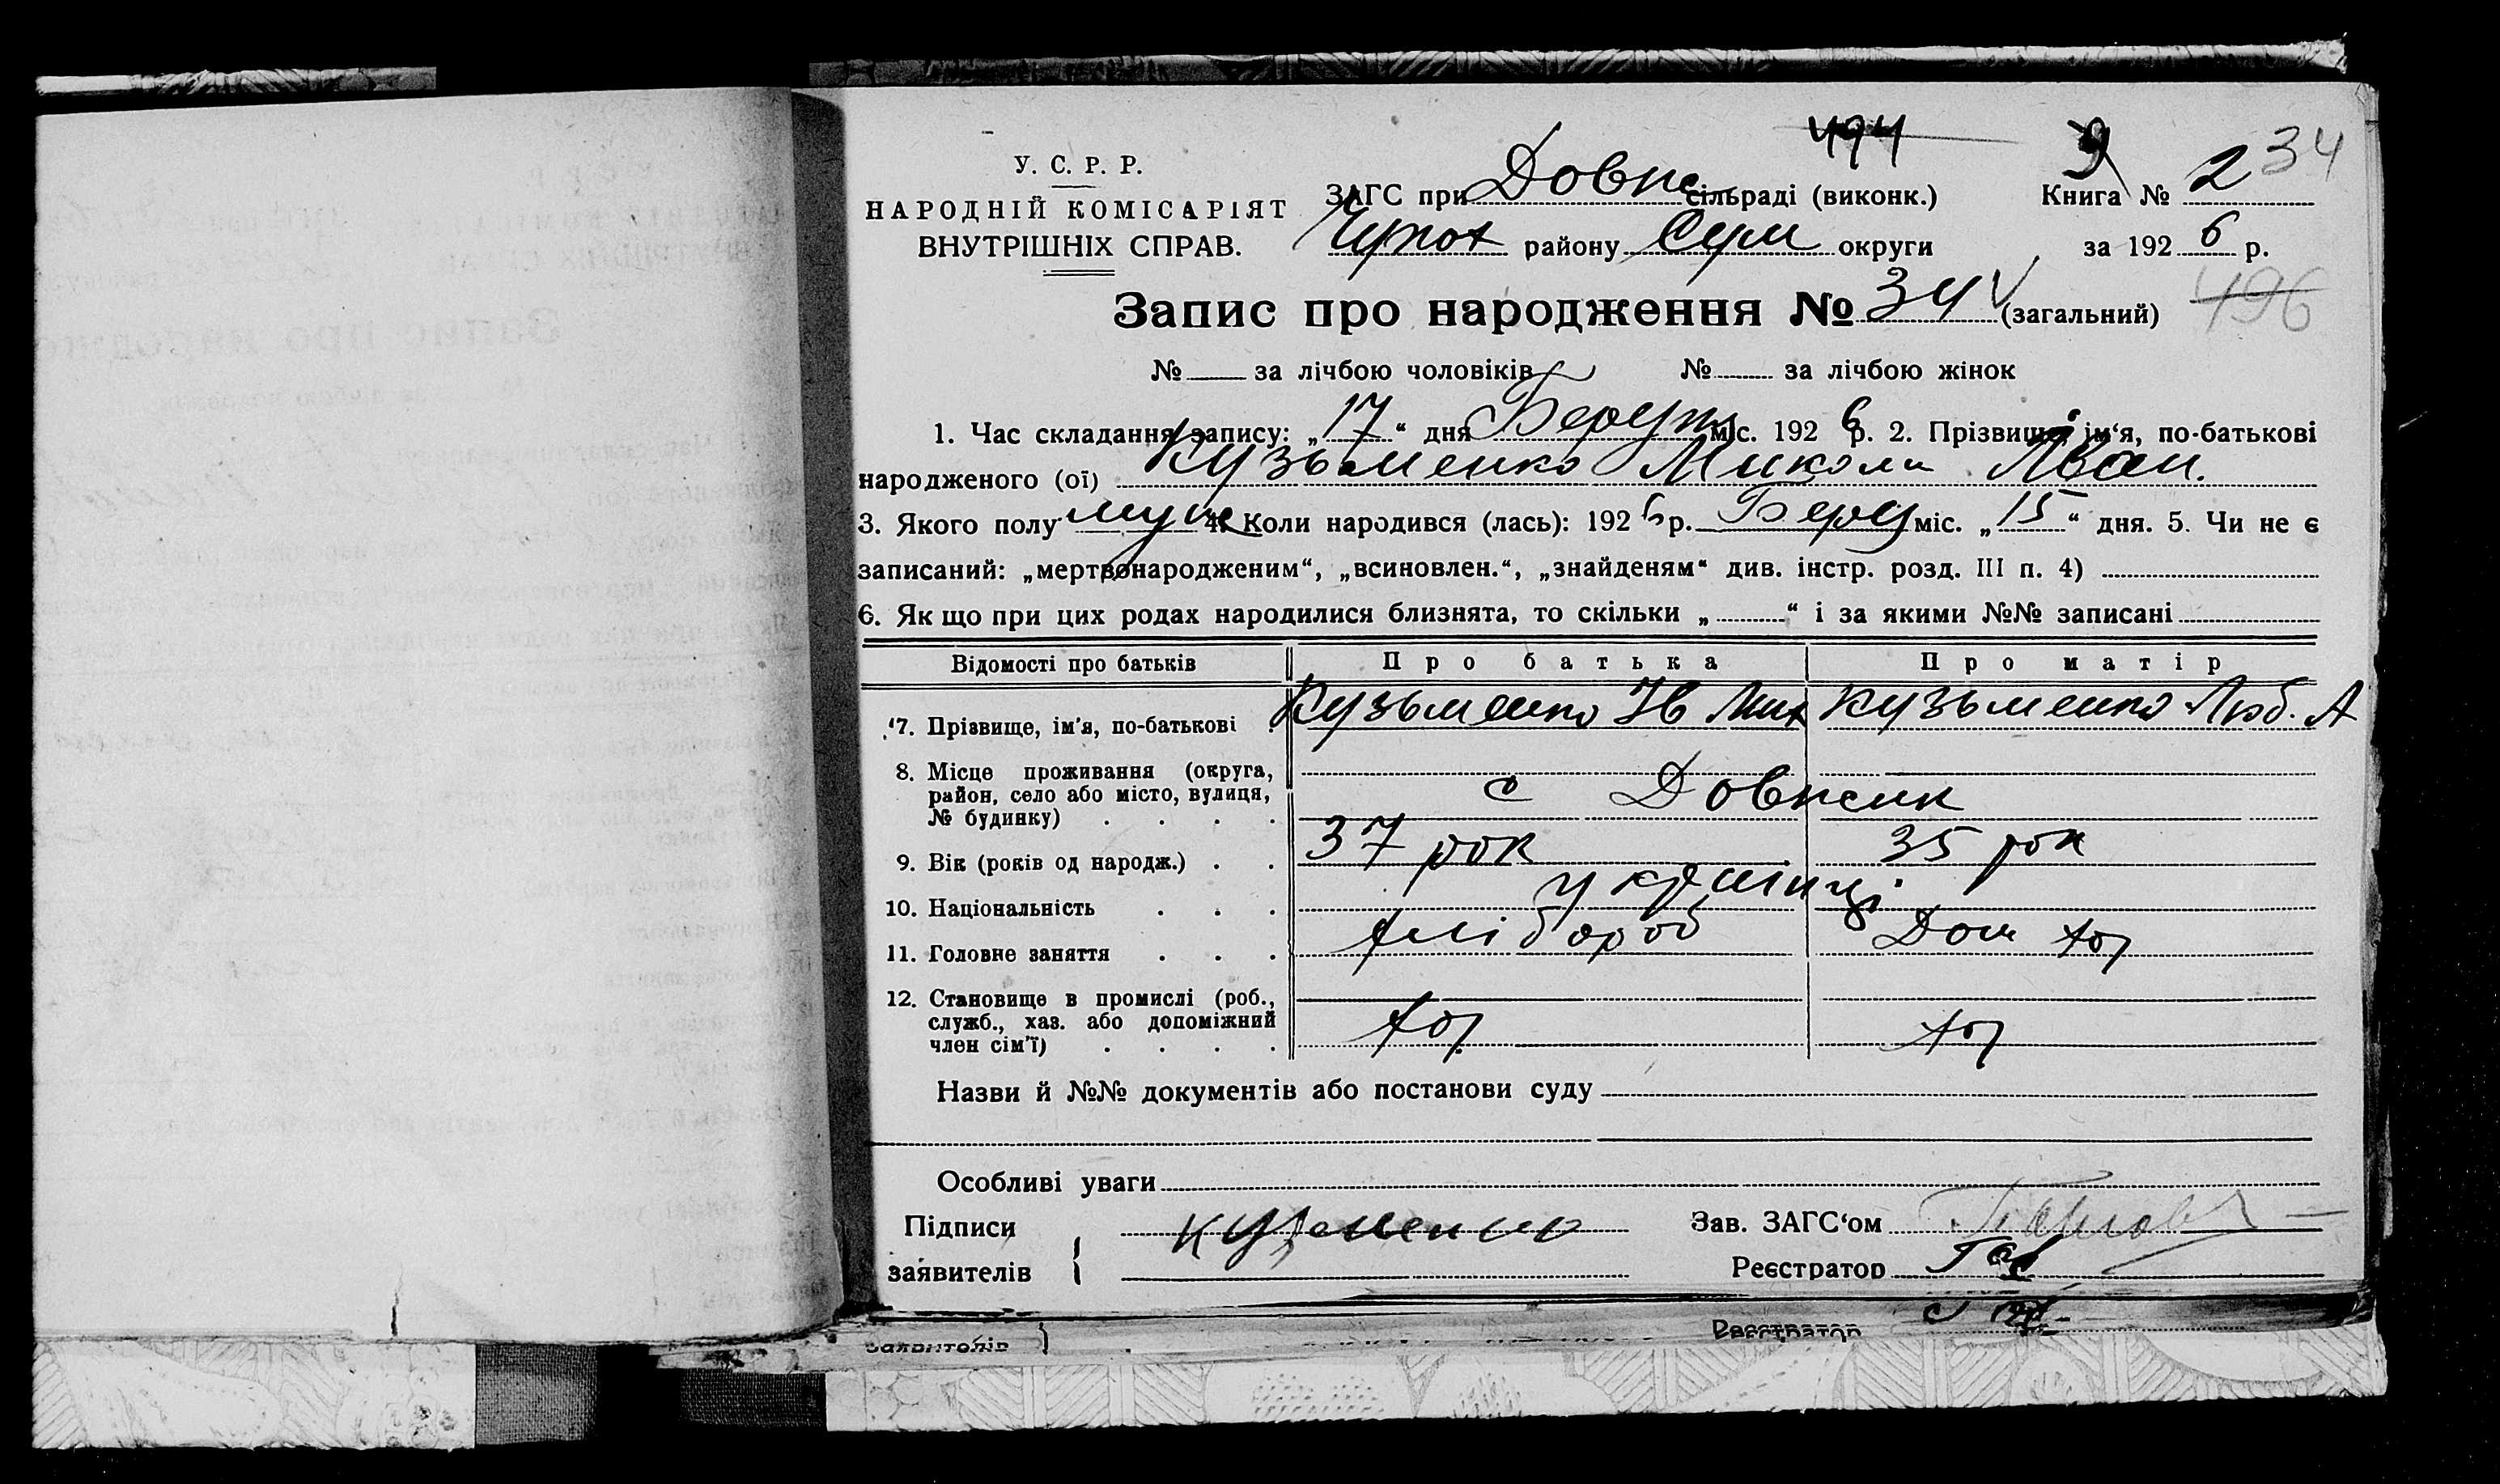 494 9 234
У. С. Р. Р.
НАРОДНІЙ КОМІСАРІЯТ
ВНУТРІШНІХ СПРАВ.
ЗАГС при Довж сільраді (виконк.) Книга № 2
району Сум округи за 192 6 р.
Запис про народження № 34 (загальний) 496
№ за лічбою чоловіків № за лічбою жінок
1. Час складання запису: „17“ дня міс. 192 6 р. 2. Прізвище, ім‘я, по-батькові
народженого (ої) Кузьменко Микола Іван.
3. Якого полу муж 4. Коли народився (лась): 192 6 р. Берез міс. „15“ дня. 5. Чи не є
записаний: „мертвонародженим“, „всиновлен.“, „знайденям“ див. інстр. розд. III п. 4)
6. Як що при цих родах народилися близнята, то скільки „ “ і за якими №№ записані
Відомості про батьків Про батька Про матір
7. Прізвище, ім‘я, по-батькові Кузьменко Ів Мих Кузьменко Люб. А
8. Місце проживання (округа,
район, село або місто, вулиця,
№ будинку) с Довжик
9. Вік (років од народж.) 37 рок 35 рок
10. Національність українці
11. Головне заняття хлібороб Дом хоз
12. Становище в промислі (роб.,
служб., хаз. або допоміжний
член сім‘ї) хоз хоз
Назви й №№ документів або постанови суду
Особливі уваги
Підписи Кузменко Зав. ЗАГС‘ом
заявителів Реєстратор
заявителів Реєстратор